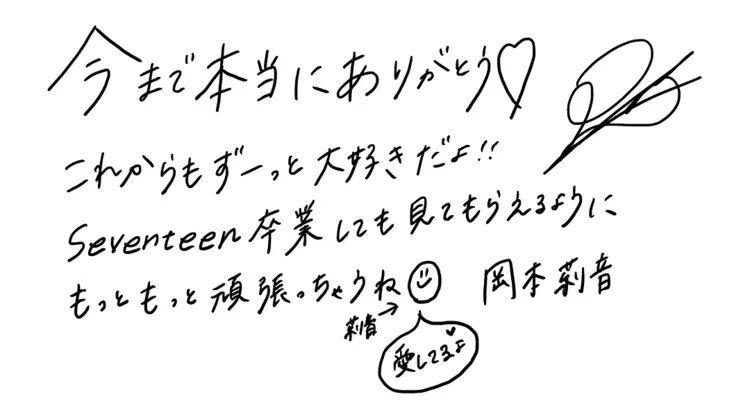 今まで本当にありがとう♡
これからもずーっと大好きだよ!!
Seventeen卒業しても見てもらえるように
もっともっと頑張っちゃうね
岡本莉音
莉音→
愛してるよ